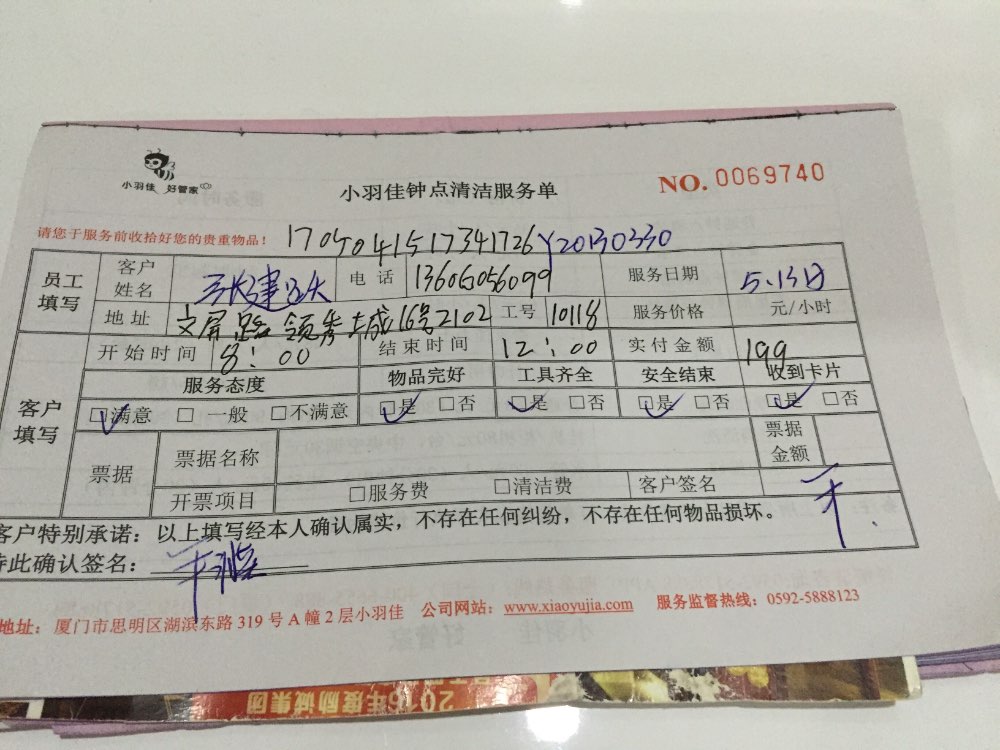 小羽佳 好管家
小羽佳钟点清洁服务单
NO. 0069740
请您于服务前收拾好您的贵重物品！
1705041517341726Y20130330
员工填写 客户姓名 电话 13606056099 服务日期 5.13日
地址 文屏路 领秀城16号2102 工号 10118 服务价格 元/小时
客户填写 开始时间 8：00 结束时间 12：00 实付金额 199
服务态度 物品完好 工具齐全 安全结束 收到卡片
□满意 □一般 □不满意 □是 □否 □是 □否 □是 □否 □是 □否
票据 票据名称 票据金额
开票项目 □服务费 □清洁费 客户签名
客户特别承诺：以上填写经本人确认属实，不存在任何纠纷，不存在任何物品损坏。
特此确认签名：
地址：厦门市思明区湖滨东路 319 号 A 幢 2 层小羽佳 公司网站：www.xiaoyujia.com 服务监督热线：0592-5888123
2016年度励诚集团